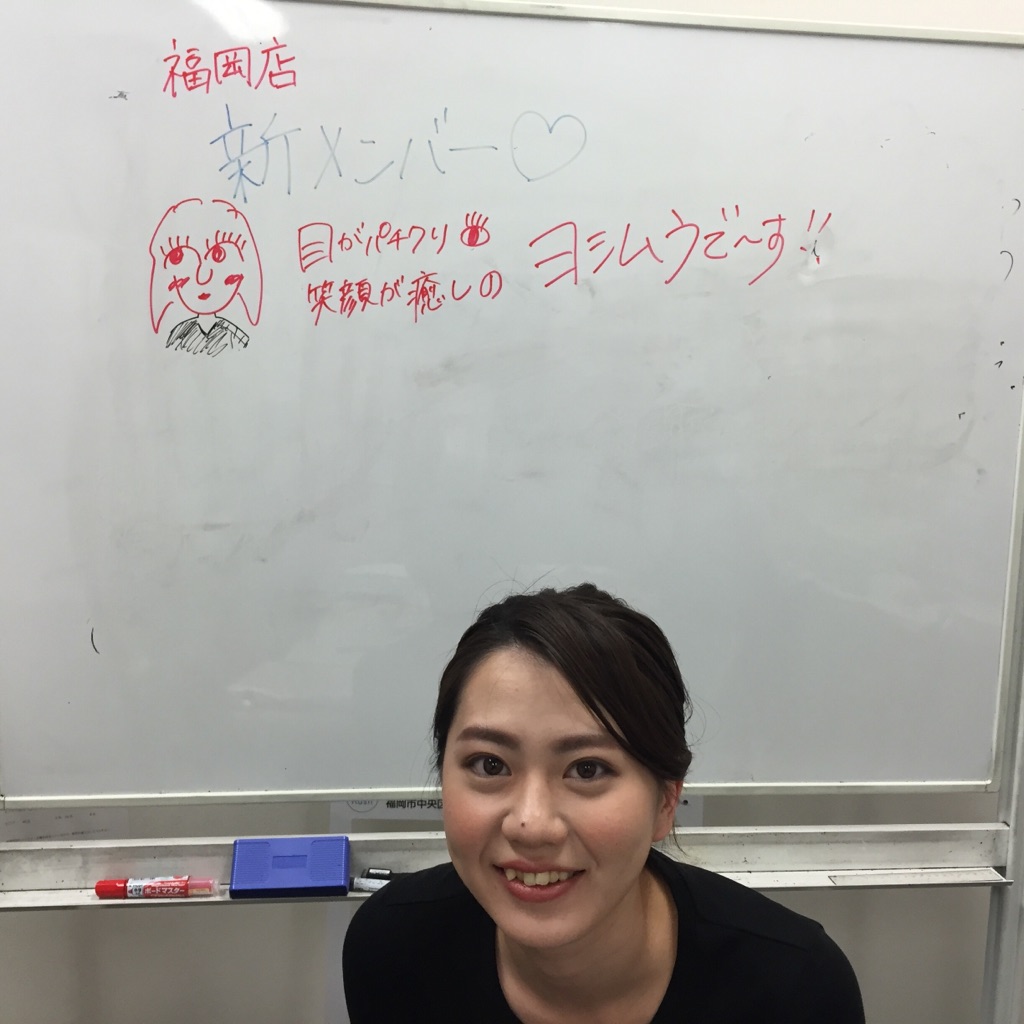 福岡店
新メンバー♡
目がパチクリ
笑顔が癒しの
ヨシムラで〜す!!
福岡市中央区
ボードマスター